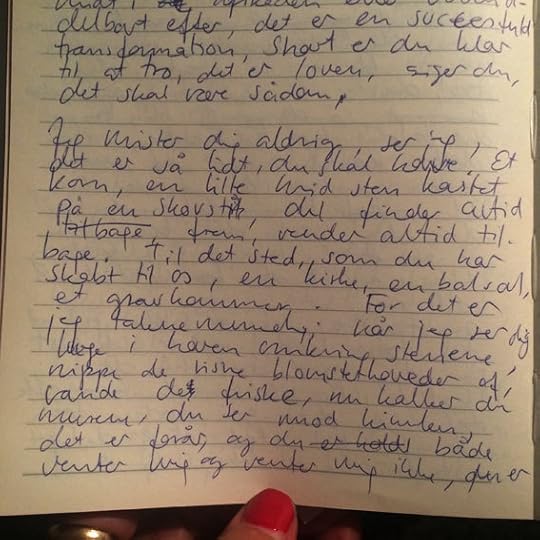 delbart efter, det er en succesfuld
transformation, snart er du klar
til at tro, det er loven, siger du,
det skal være sådan,
Jeg mister dig aldrig, ser jeg,
det er så lidt, du skal Et
korn, en lille hvid sten kastet
på en skovsti, du finder altid
tilbage, frem, vender altid til-
bage. Til det sted, som du har
skabt til os, en kirke, en balsal,
et gravkammer. For det er
jeg taknemmelig, når jeg ser dig
i haven omkring stenene,
nippe de visne blomsterhoveder af,
vande de friske, nu kalker du
muren, du ser mod himlen,
det er forår, og du er både
venter mig og venter mig ikke, der er